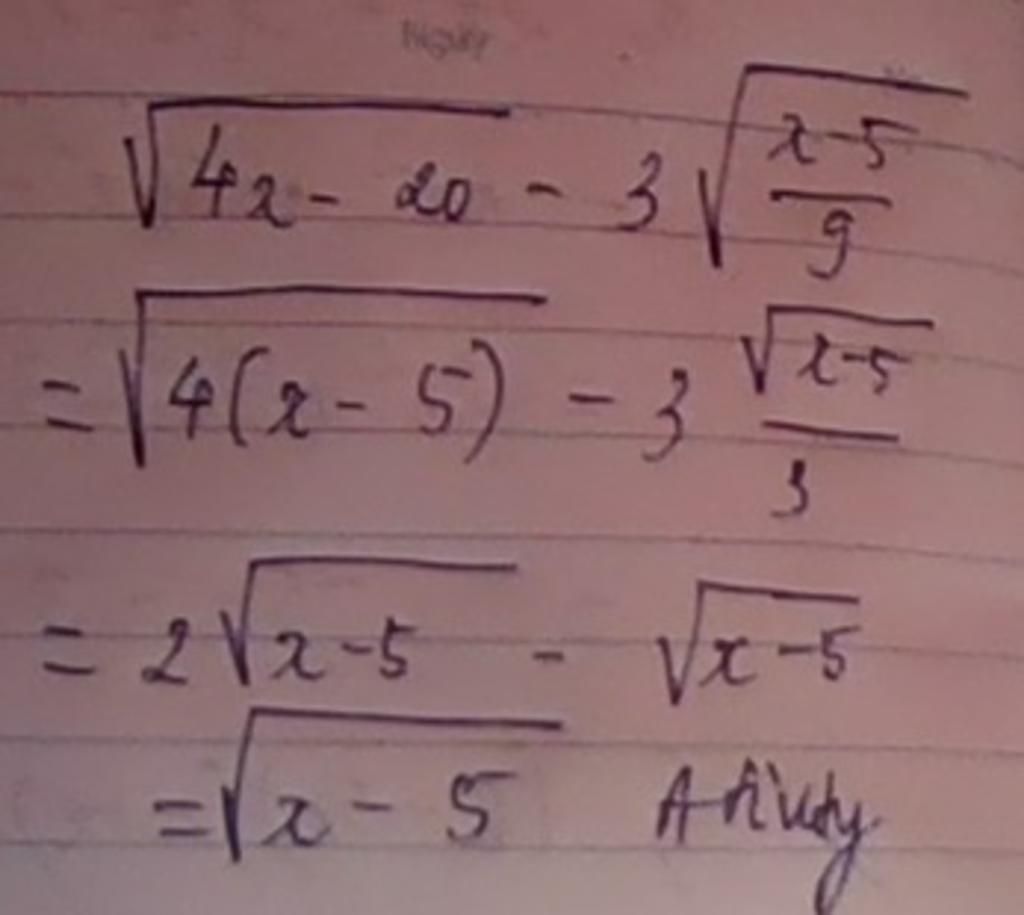 √(4x - 20) - 3√((x-5)/9)
= √(4(x - 5)) - 3 √(x-5)/3
= 2√(x-5) - √(x-5)
= √(x - 5)